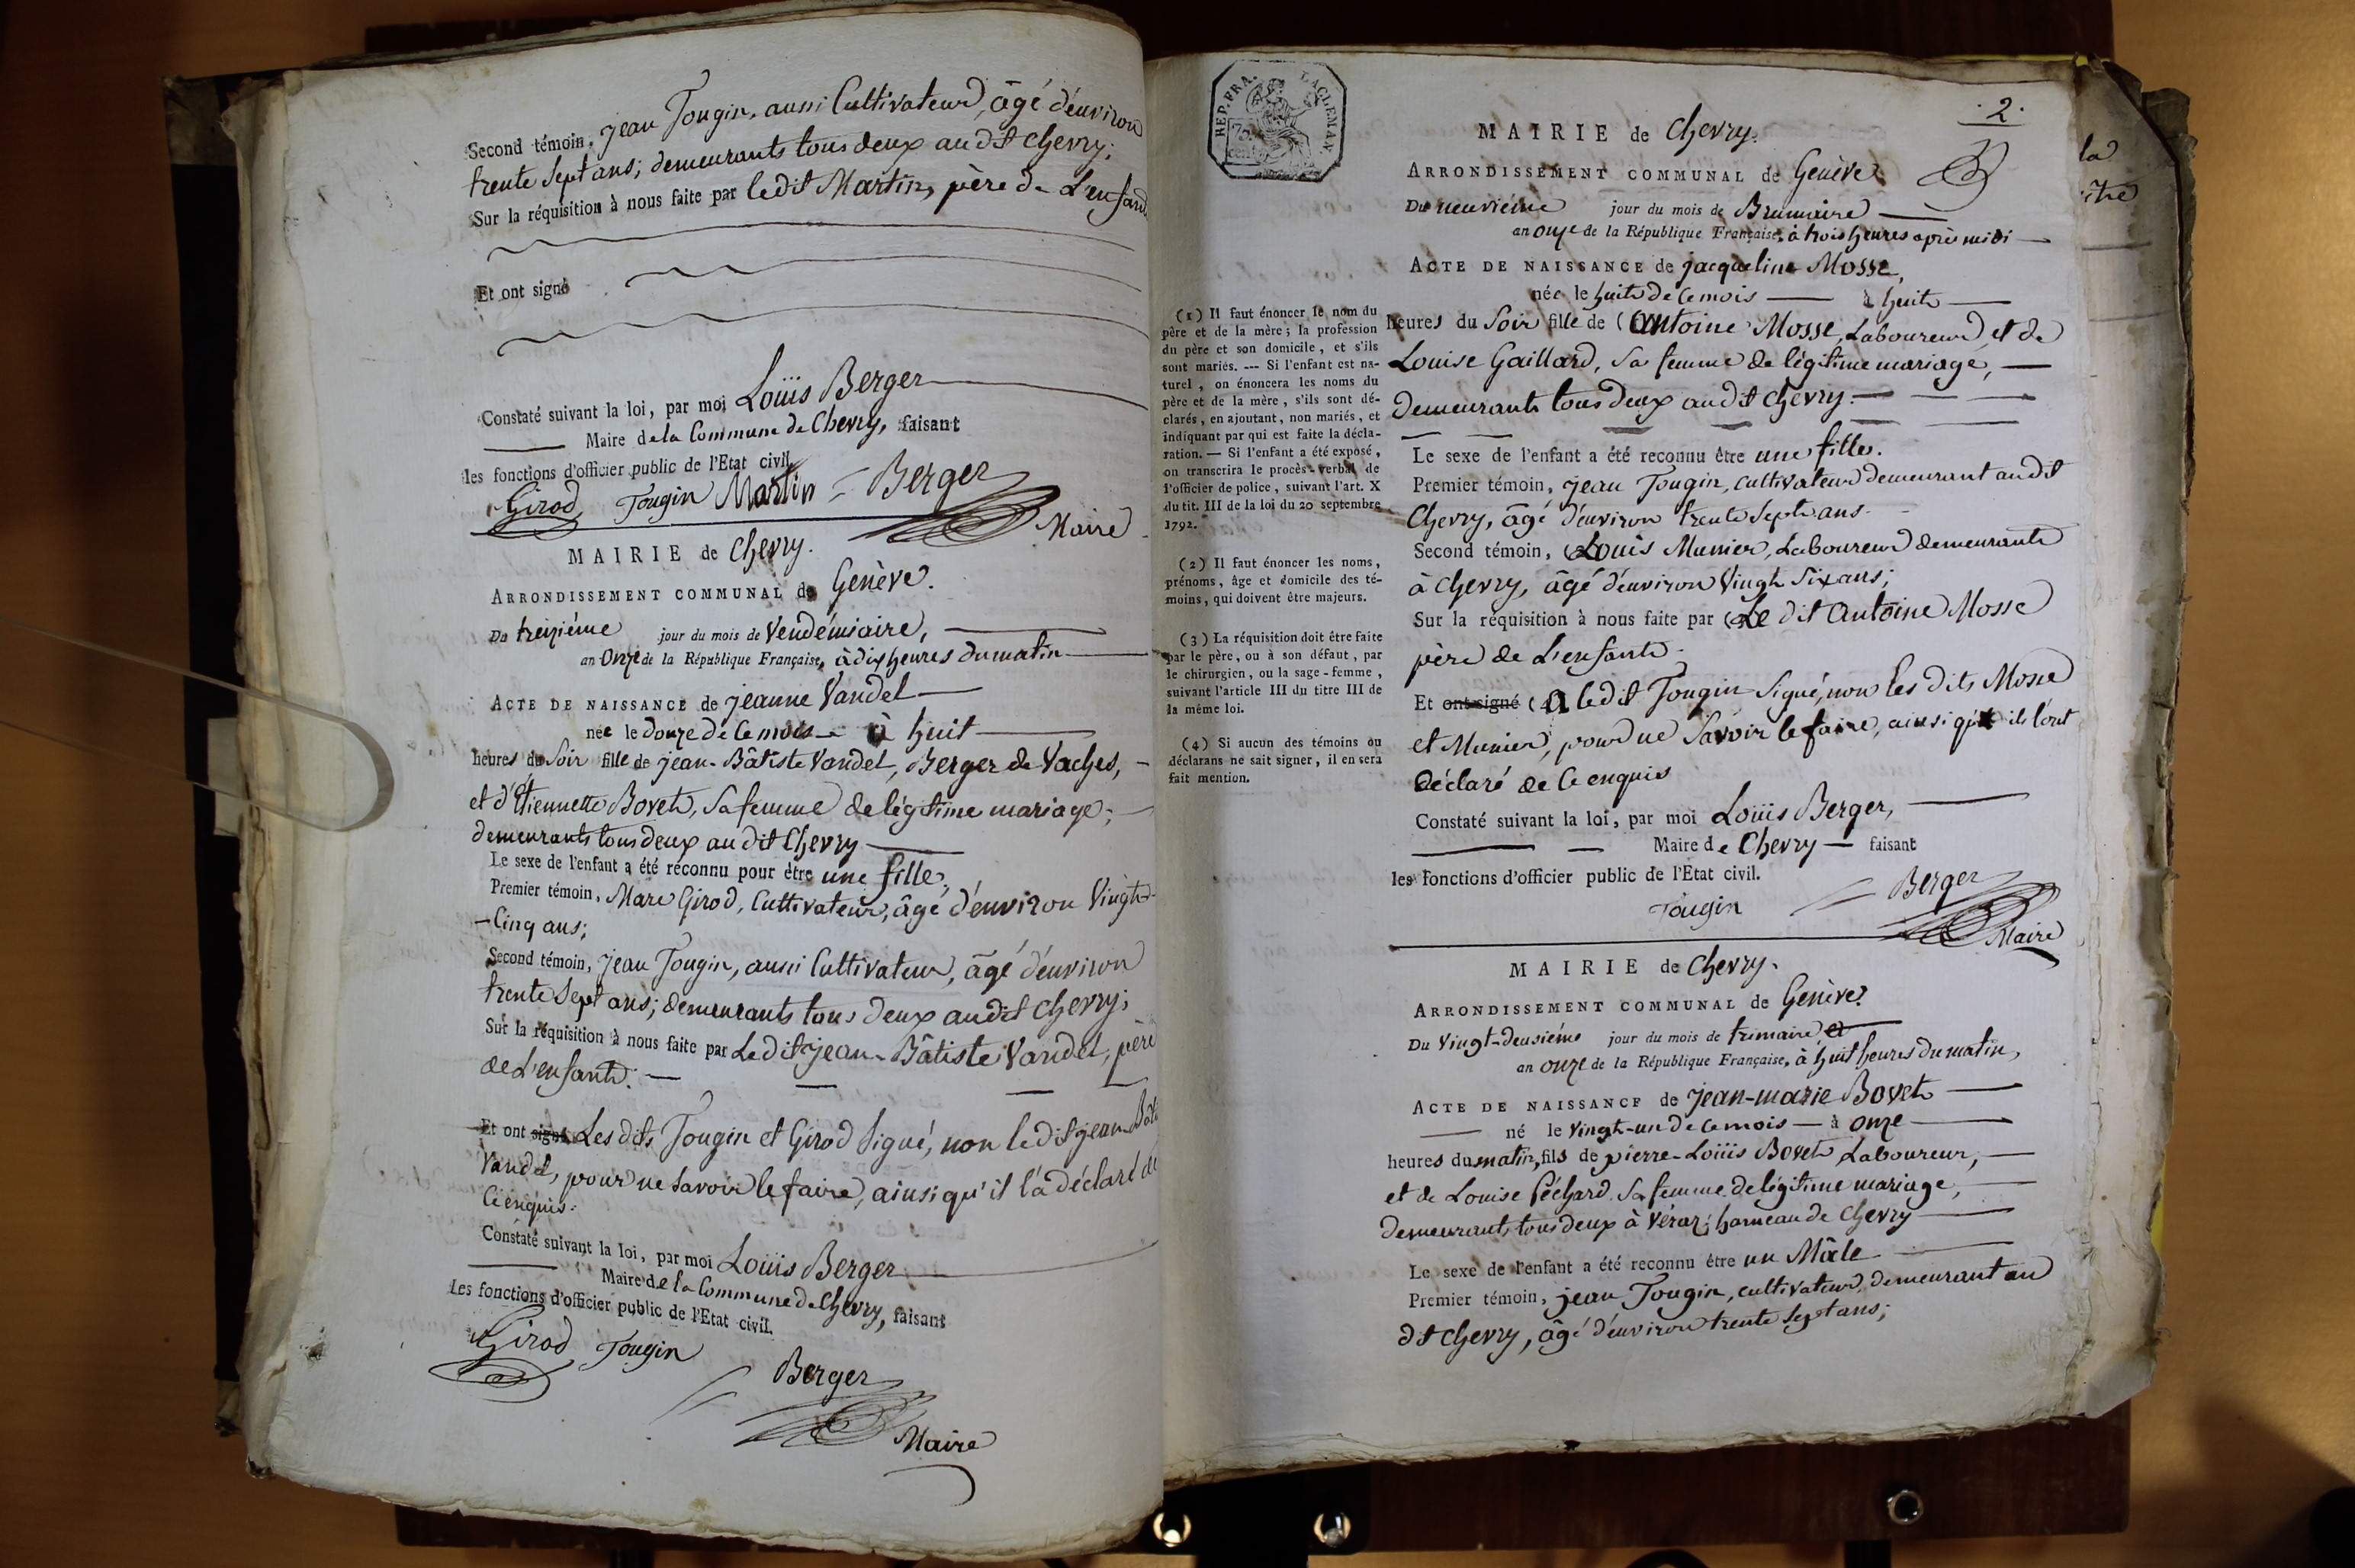 Second témoin, jean Tougin, aussi Cultivateur, âgé d'environ
trente Sept ans; demeurants tous deux au dit Chevry;
Sur la réquisition à nous faite par le dit Martin, père de L'enfant
Et ont signé
Constaté suivant la loi, par moi Loüis Berger
Maire de la Commune de Chevry, faisant
les fonctions d'officier public de l'Etat civil.
Girod Tougin Martin Berger
Maire
MAIRIE de Chevry.
ARRONDISSEMENT COMMUNAL de Genève.
Du treiziéme jour du mois de Vendémiaire,
an Onze de la République Française, à dix heures du matin
ACTE DE NAISSANCE de jeanne Vandel
née le douze de ce mois à huit
heures du Soir fille de jean-Bâtiste Vandel, Berger de Vaches,
et d'Etiennette Bovet, Sa femme de légitime mariage;
demeurants tous deux au dit Chevry
Le sexe de l'enfant a été reconnu pour être une fille,
Premier témoin, Marc Girod, Cultivateur, âgé d'environ Vingt-
-Cinq ans;
Second témoin, jean Tougin, aussi Cultivateur, âgé d'environ
trente Sept ans; demeurants tous deux au dit Chevry;
Sur la réquisition à nous faite par Le dit jean-Bâtiste Vandel, père
de L'enfant.
Et ont signé Les dits Tougin et Girod Signé, non le dit jean-Bâti
Vandel, pour ne Savoir le faire, ainsi qu'il l'a déclaré de
Ce enquis.
Constaté suivant la loi, par moi Loüis Berger
Maire de la Commune de Chevry, faisant
Les fonctions d'officier public de l'Etat civil.
Girod Tougin
Berger
Maire
REP. FRA.
75
cent
. 2 .
MAIRIE de Chevry.
ARRONDISSEMENT COMMUNAL de Genève
Du neuviéme jour du mois de Brumaire
an onze de la République Française, à trois heures après midi
ACTE DE NAISSANCE de jacqueline Mosse,
née le huit de Ce mois à huit
heures du Soir fille de (antoine Mosse, Laboureur, et de
Louise Gaillard, Sa femme de légitime mariage,
Demeurants tous deux au dit Chevry.
Le sexe de l'enfant a été reconnu être une fille.
Premier témoin, jean Tougin, cultivateur demeurant au dit
Chevry, âgé d'environ trente Sept ans.
Second témoin, (Louis Munier, Laboureur demeurant
à Chevry, âgé d'environ Vingt Six ans;
Sur la réquisition à nous faite par (Le dit antoine Mosse
père de L'enfant.
Et ont signé (A le dit Tougin Signé, non les dits Mosse
et Munier, pour ne Savoir le faire, ainsi qu'ils l'ont
Déclaré de Ce enquis
Constaté suivant la loi, par moi Loüis Berger,
Maire de Chevry faisant
les fonctions d'officier public de l'Etat civil.
Berger
Tougin
Maire
(1) Il faut énoncer le nom du
père et de la mère; la profession
du père et son domicile, et s'ils
sont mariés. --- Si l'enfant est na-
turel, on énoncera les noms du
père et de la mère, s'ils sont dé-
clarés, en ajoutant, non mariés, et
indiquant par qui est faite la décla-
ration. — Si l'enfant a été exposé,
on transcrira le procès-verbal de
l'officier de police, suivant l'art. X
du tit. III de la loi du 20 septembre
1792.
(2) Il faut énoncer les noms,
prénoms, âge et domicile des té-
moins, qui doivent être majeurs.
(3) La réquisition doit être faite
par le père, ou à son défaut, par
le chirurgien, ou la sage-femme,
suivant l'article III du titre III de
la même loi.
(4) Si aucun des témoins ou
déclarans ne sait signer, il en sera
fait mention.
MAIRIE de Chevry.
ARRONDISSEMENT COMMUNAL de Genève
Du Vingt-deusiéme jour du mois de frimaire
an onze de la République Française, à huit heures du matin,
ACTE DE NAISSANCE de jean-marie Bovet
né le Vingt-un de ce mois — à onze
heures du matin, fils de pierre-Loüis Bovet Laboureur,
et de Louise Péchard Sa femme de légitime mariage,
demeurants tous deux à Véraz; hameau de Chevry
Le sexe de l'enfant a été reconnu être un Mâle
Premier témoin, jean Tougin, cultivateur, demeurant au
dit Chevry, âgé d'environ trente Sept ans;
la